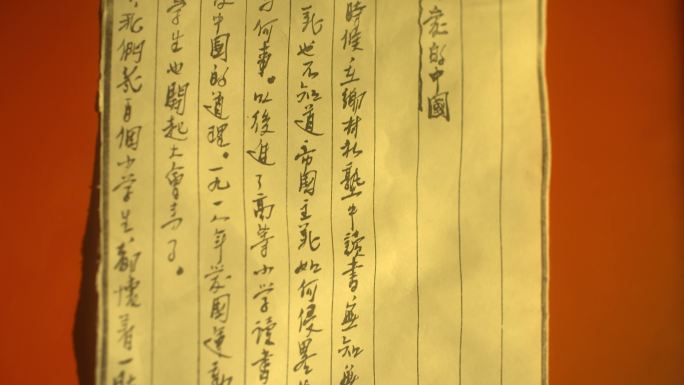 愛的中國
時候,在鄉村私塾中讀書,無知無
義,也不知道帝國主義如何侵略
何事。以後進了高等小学讀書
中國的道理。一九一八年愛國運動
學生也開起大會来了。
我們幾百個小学生,都懷着一肚